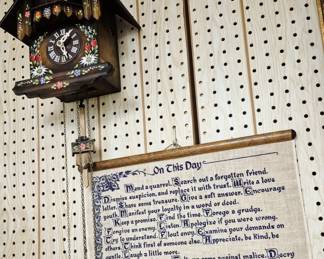 On This Day
Mend a quarrel. Search out a forgotten friend.
Dismiss suspicion, and replace it with trust. Write a love
letter. Share some treasure. Give a soft answer. Encourage
youth. Manifest your loyalty in a word or deed.
Keep a promise. Find the time. Forego a grudge.
Forgive an enemy. Listen. Apologize if you were wrong.
Try to understand. Flout envy. Examine your demands on
others. Think first of someone else. Appreciate, be kind, be
gentle. Laugh a little more.
malice. Decry